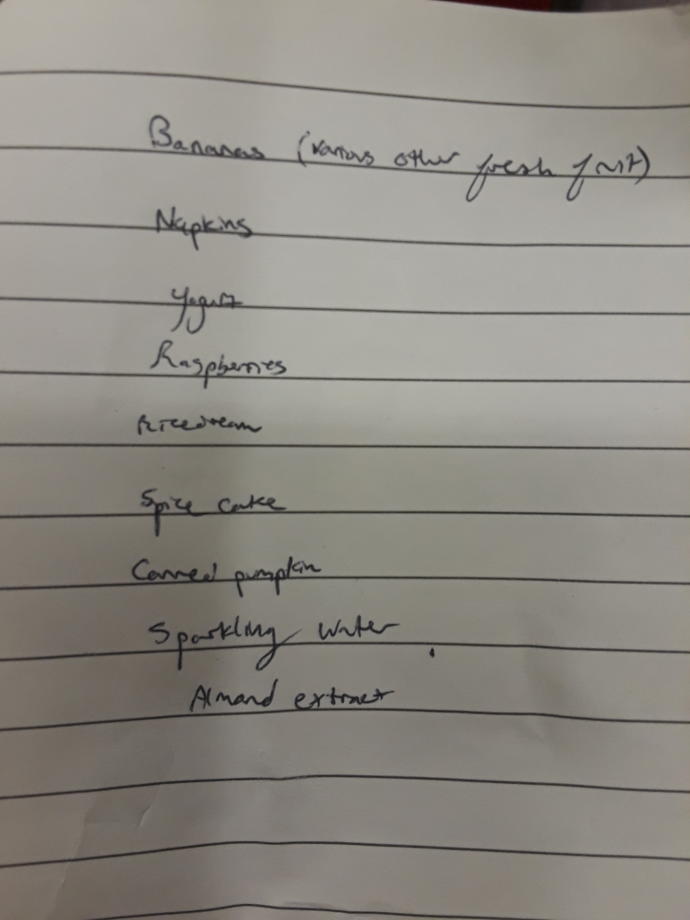 Bananas (various other fresh fruit)
Napkins
Yogurt
Raspberries
Ricedream
Spice cake
Canned pumpkin
Sparkling water
Almond extract